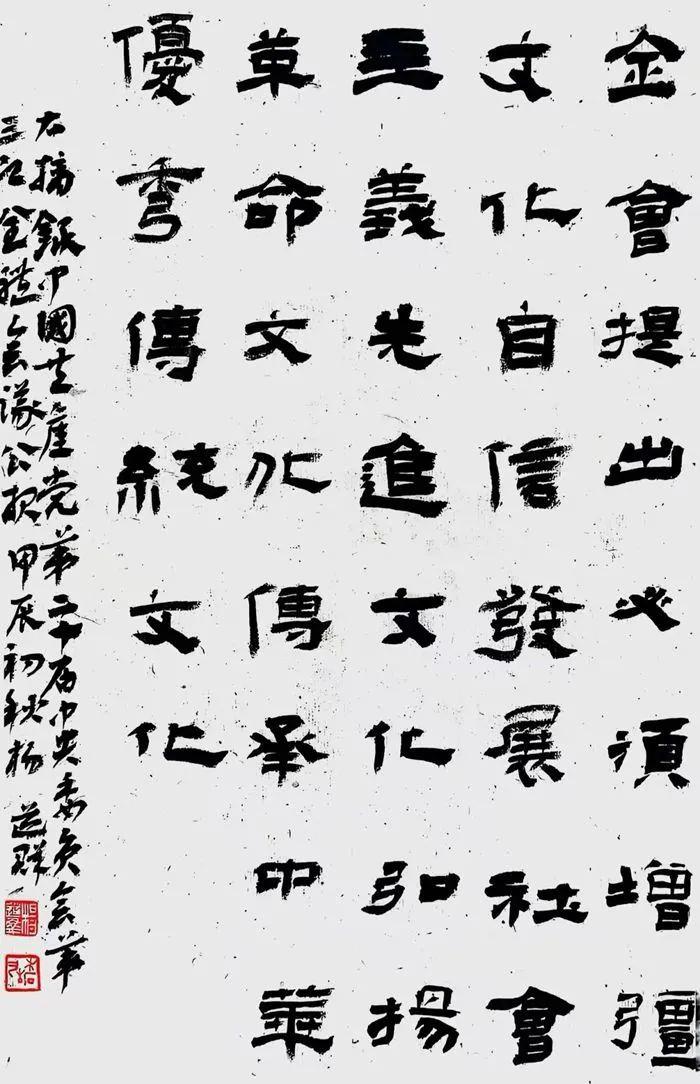 全會提出必須增彊
文化自信發展社會
主義先進文化弘揚
革命文化傳承中華
優秀傳統文化
右摘録中國共産党第二十届中央委員会第
三次全體会議公报甲辰初秋杨